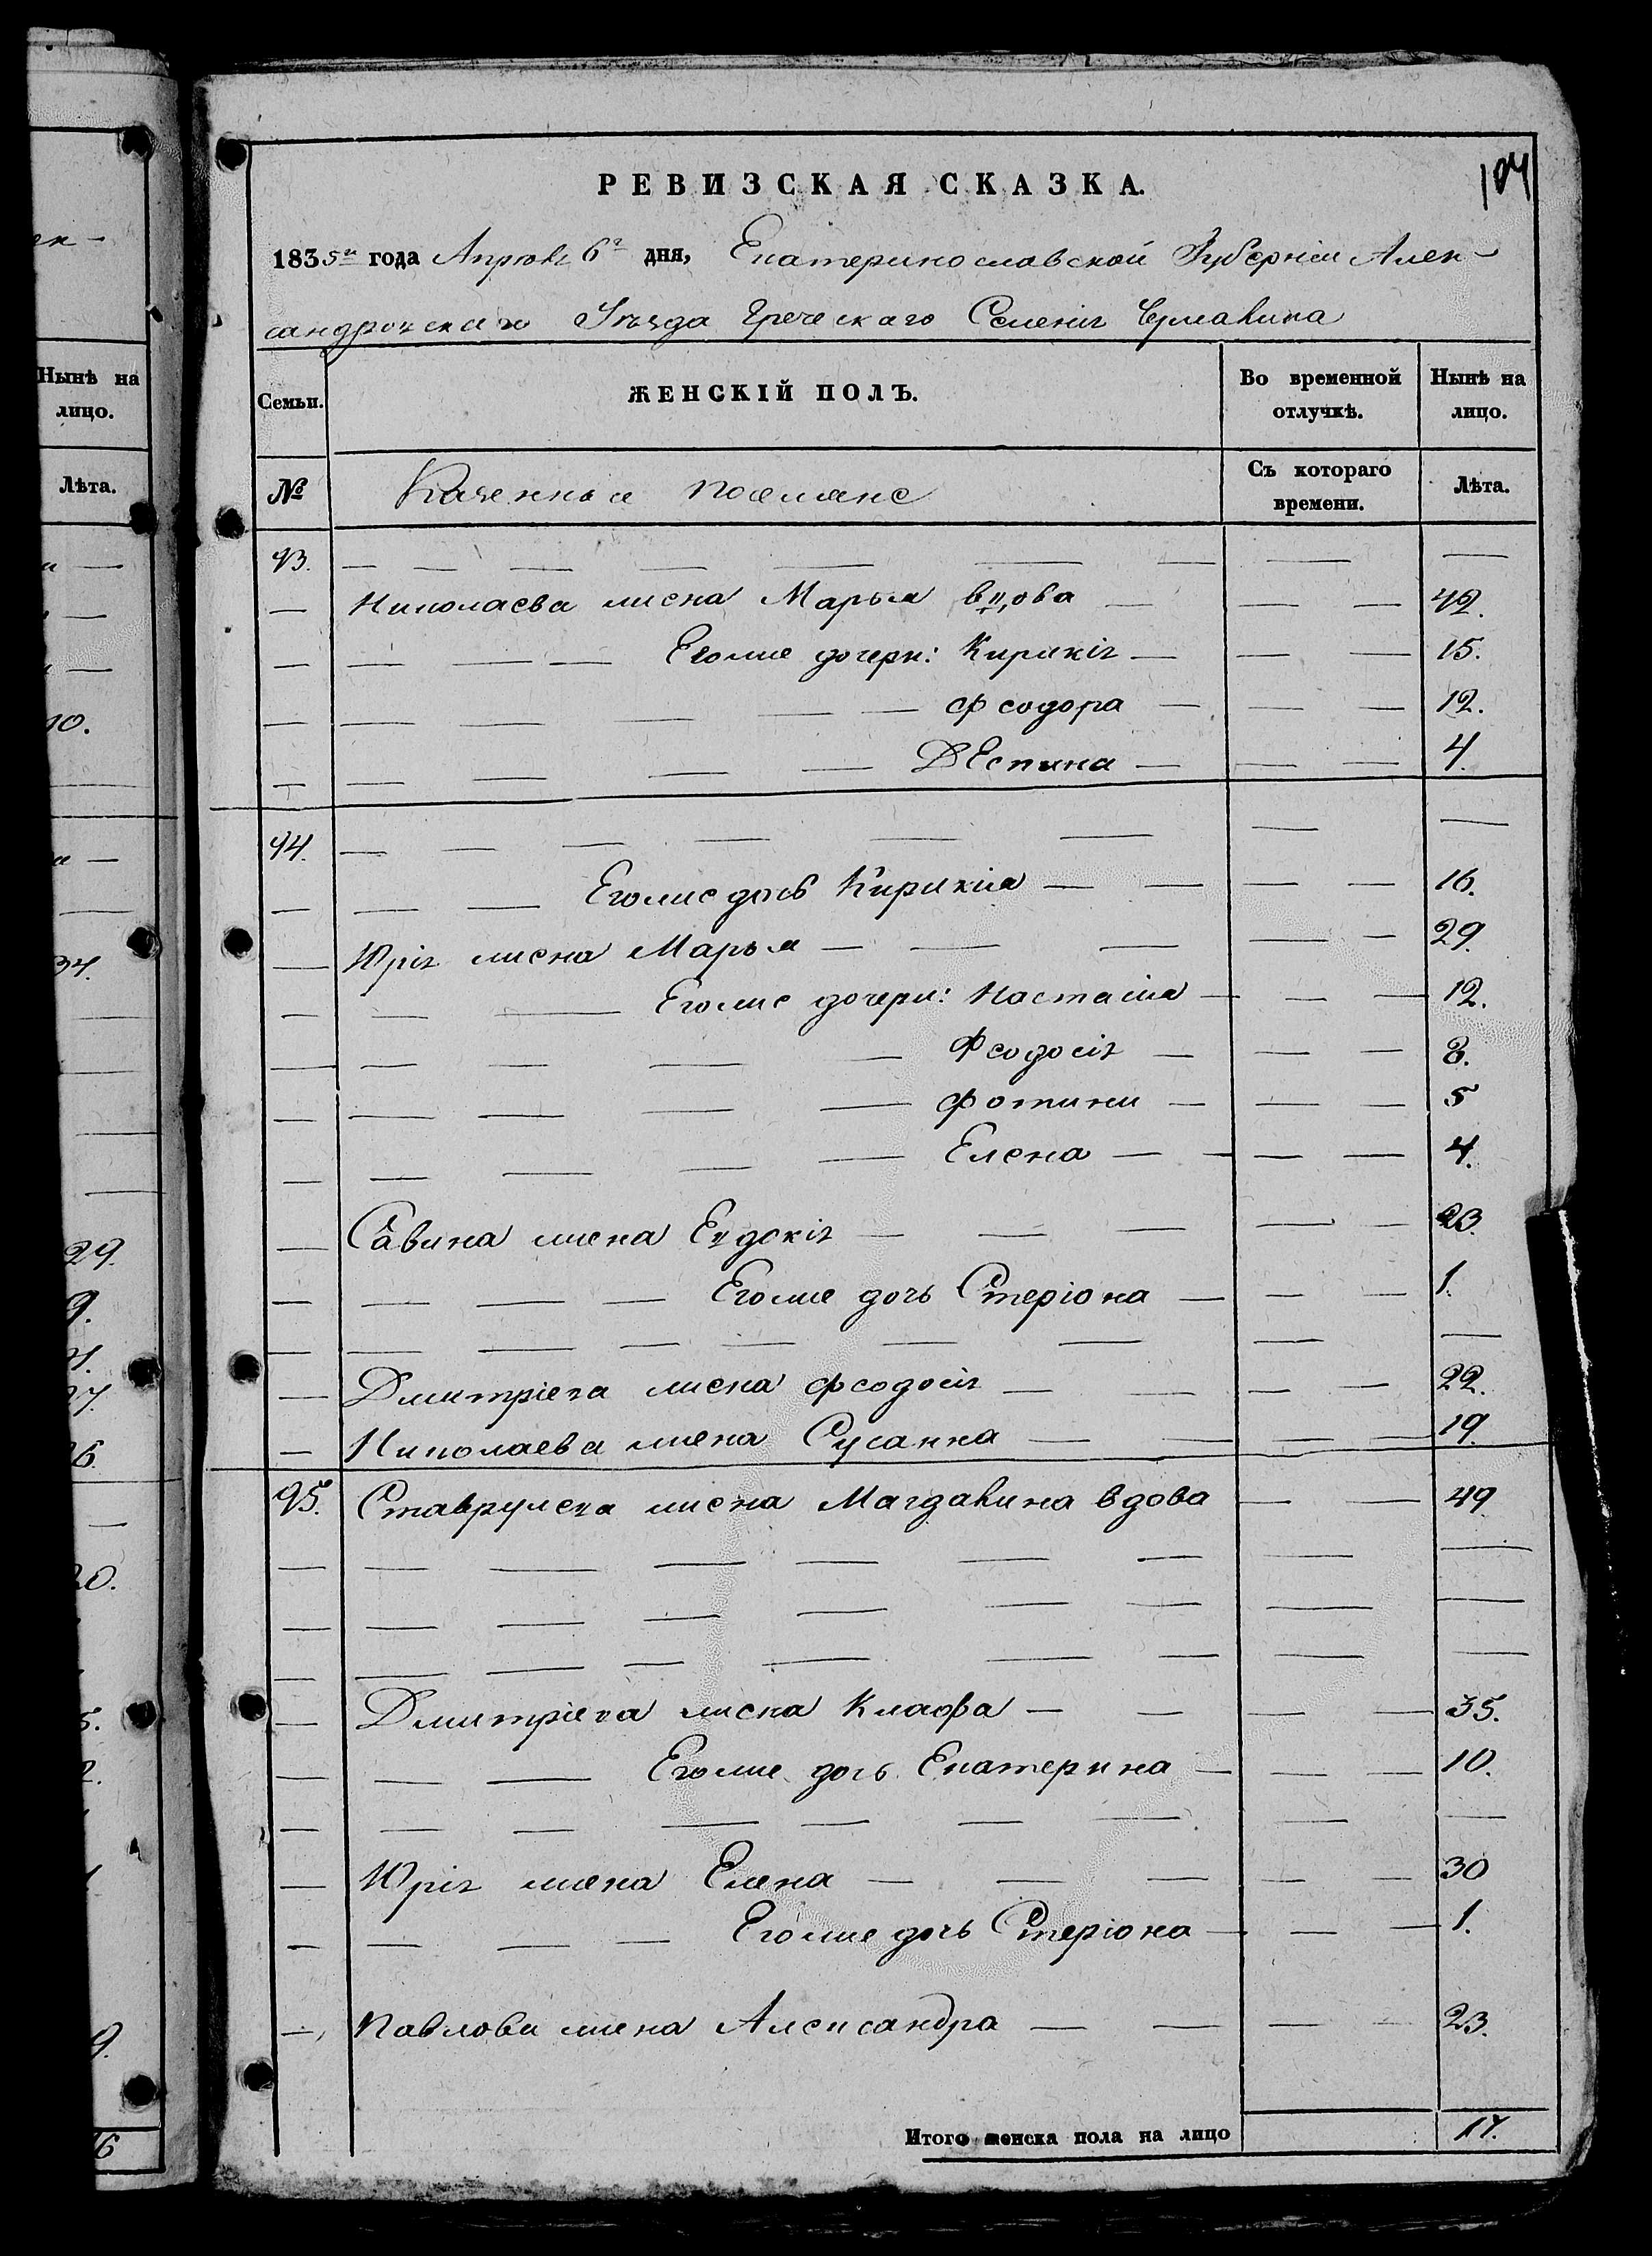 ен-
104
РЕВИЗСКАЯ СКАЗКА.
1835го года Апреля 6го дня, Екатеринославской Губерніи Алек-
сандровскаго Уѣзда Греческаго Селенія
Нынѣ на
лицо.
Лѣта.
Семьи.
ЖЕНСКІЙ ПОЛЪ.
Во временной
отлучкѣ.
Нынѣ на
лицо.
№
Казенныя поселяне
Съ котораго
времени.
Лѣта.
93.
Николаева жена Марья вдова 42.
Егоже дочери: Кирикія 15.
Феодора 12.
Деспина 4.
94.
Егоже дочь Кирикія 16.
Юрія жена Марья 29.
Егоже дочери: Настасія 12.
Феодосія 8.
Фотини 5
Елена 4.
Савина жена Евдокія 23.
Егоже дочь Стеріона 1.
Дмитріева жена Феодосія 22.
Николаева жена Сусанна 19.
95. Ставрулева жена Магдалина вдова 49
Дмитріева жена Клафа 35.
Егоже дочь Екатерина 10.
Юрія жена Елена 30
Егоже дочь Стеріона 1.
Павлова жена Александра 23.
Итого женска пола на лицо 17.
10.
34.
29.
9.
20.
9.